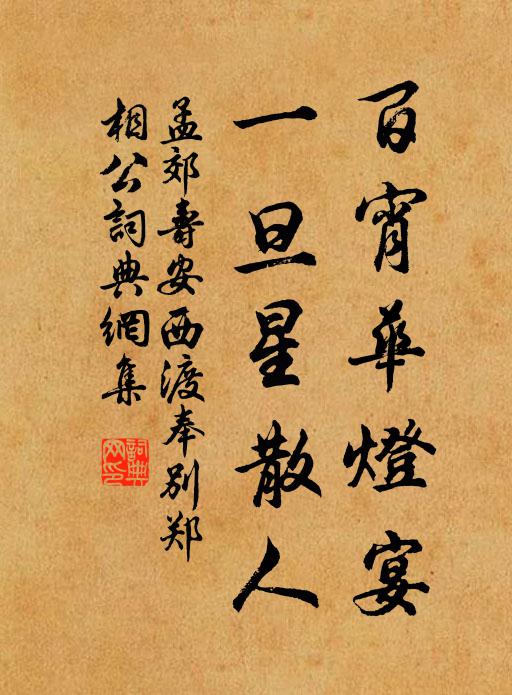 百宵華燈宴
一旦星散人
孟郊壽安西渡奉别郑
相公詞典網集
詞典網印